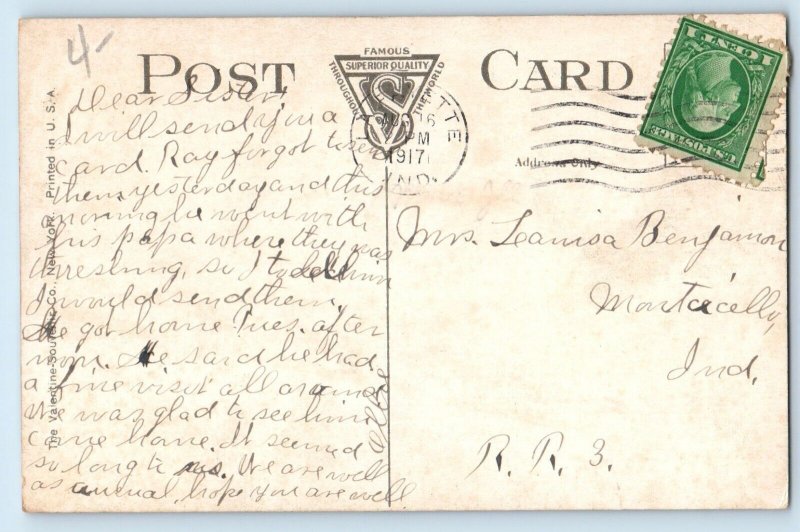 4-
POST CARD
FAMOUS
SUPERIOR QUALITY
THROUGHOUT THE WORLD
AUG 16
PM
1917
IND.
U.S. POSTAGE
1 CENT 1
Address Only
The Valentine-Souvenir Co., New York. Printed in U. S. A.
Dear Sister,
I will send you a
card. Ray forgot to send
them yesterday and this
morning he went with
his papa where they was
threshing, so I told him
I would send them.
He got home Tues. after
noon. He said he had
a fine visit all around
We was glad to see him
come home. It seemed
so long to us. We are well
as usual, hope you are well
Mrs. Louisa Benjamin
Monticello,
Ind.
R. R. 3.